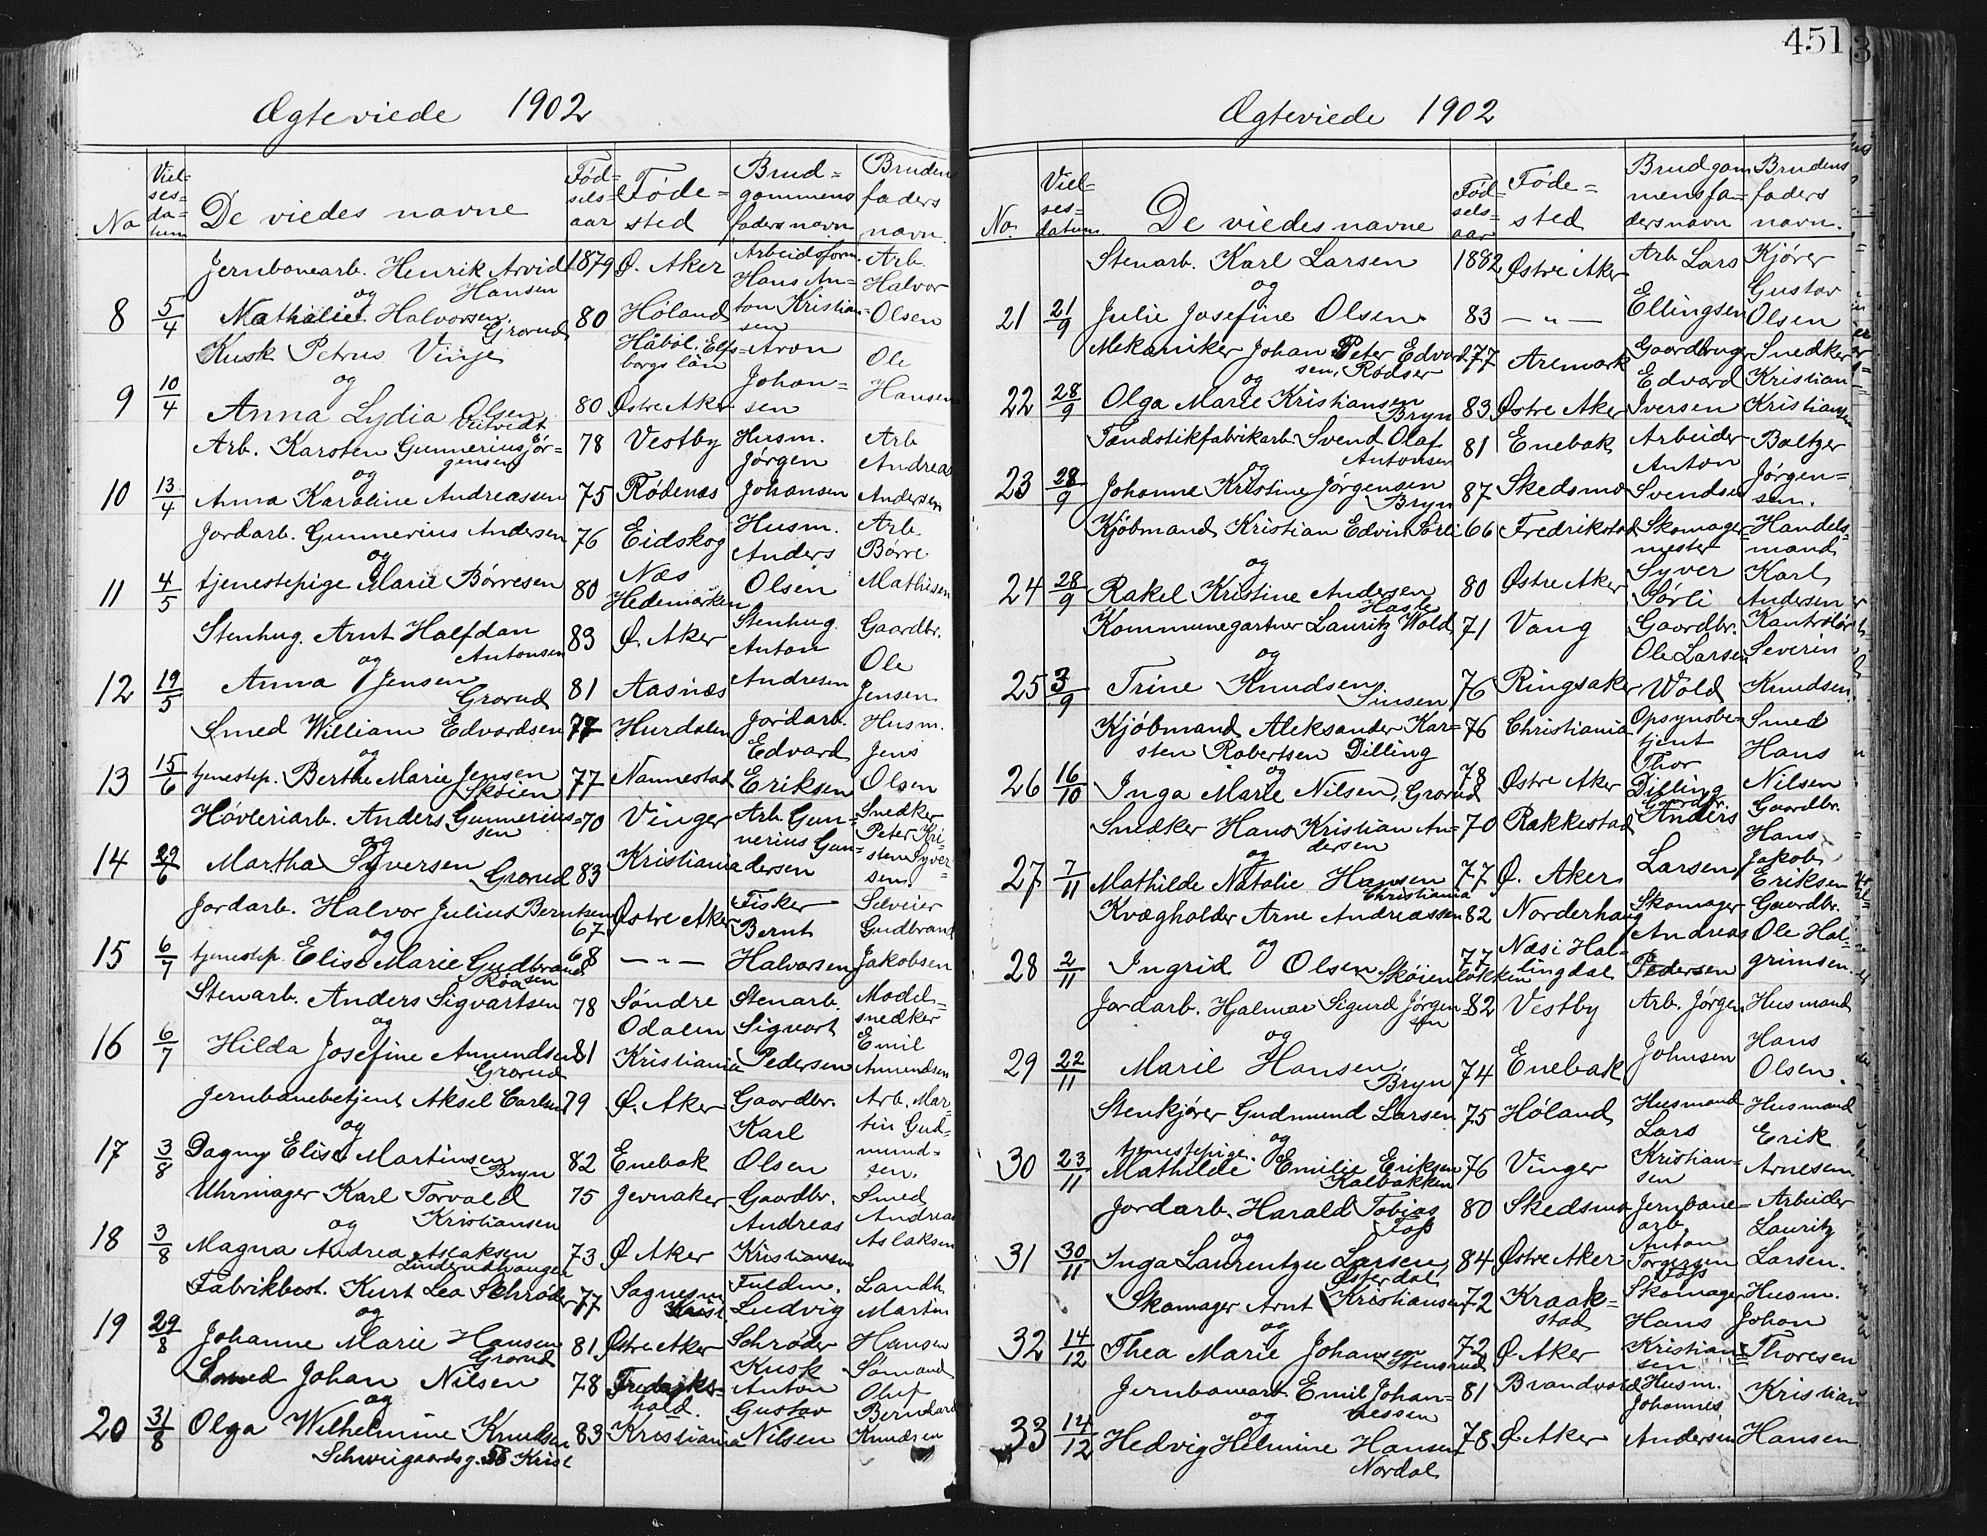 451
Ægteviede 1902
No
Vielsesdatum
De viedes navne
Fødselsaar
Fødested
Brudgommens faders navn
Brudens faders navn.
Jernbanearb. Henrik Arvid Hansen 1879 Ø. Aker Arbeidsform. Hans Anton Kristiansen Arb. Halvor Olsen
og
8 5/4 Nathalie Halvorsen. Grorud 80 Høland
Kusk Petrus Vinje Håbøl, Elfsborgs län Aron Johansen Ole Hansen
og
9 10/4 Anna Lydia Olsen Veitvedt 80 Østre Aker
Arb. Karsten Gunnerius Jørgensen 78 Vestby Husm. Jørgen Johansen Arb Andreas Andersen
og
10 13/4 Anna Karoline Andreassen 75 Rødenæs
Jordarb. Gunnerius Andersen 76 Eidskog Husm. Anders Olsen Arb. Børre Mathisen
og
11 4/5 tjenestepige Marie Børresen 80 Næs Hedemarken
Stenhug. Arnt Halfdan Antonsen 83 Ø. Aker Stenhug. Anton Andresen Gaardbr. Ole Jensen
og
12 19/5 Anna Jensen Grorud 81 Aasnæs
Smed William Edvardsen 77 Hurdalen Jordarb. Edvard Eriksen Husm. Jens Olsen
og
13 15/6 tjenestep. Berthe Marie Jensen Skøien 77 Nannestad
Høvleriarb. Anders Gunneriussen 70 Vinger Arb. Gunnerius Gundersen Snedker Peter Kristen Syversen
og
14 29/6 Martha Syversen Grorud 83 Kristiania
Jordarb. Halvor Julius Berntsen 67 Østre Aker Fisker Bernt Halvorsen Selveier Gudbrand Jakobsen
og
15 6/7 tjenestep. Elise Marie Gudbrandsen Roa 68 — „ —
Stenarb. Anders Sigvartsen 78 Søndre Odalen Stenarb. Sigvart Pedersen Modelsnedker Emil Amundsen
og
16 6/7 Hilda Josefine Amundsen Grorud 81 Kristiania
Jernbanebetjent Aksel Carlsen 79 Ø. Aker Gaardbr. Karl Olsen Arb. Martin Gudmundsen.
og
17 3/8 Dagny Elise Martinsen Bryn 82 Enebak
Uhrmager Karl Torvald Kristiansen 75 Jevnaker Gaardbr. Andreas Kristiansen Smed Andreas Aslaksen
og
18 3/8 Magna Andrea Aslaksen 73 Ø Aker
Fabrikbest. Kurt Leo Schrøder 77 Sagnesm Krist. Fuldm. Ludvig Schrøder Landh. Martin Hansen
og
19 29/8 Johanne Marie Hansen Grorud 81 Østre Aker
Smed Johan Nilsen 78 Fredrikshald. Kusk Anton Gustav Nilsen Sømand Oluf Berndard Knudsen
og
20 31/8 Olga Wilhelmine Knudsen 83 Kristiania
Schweigaardsg. 58 Krist
Ægteviede 1902
No.
Vielsesdatum
De viedes navne
Fødselsaar
Fødested
Brudgommens faders navn
Brudens faders navn.
Stenarb. Karl Larsen 1882 Østre Aker Arb Lars Ellingsen Kjører Gustav Olsen
og
21 21/9 Julie Josefine Olsen. 83 — „ —
Mekaniker Johan Peter Edvardsen, Rødser 77 Aremark Gaardbruger Edvard Iversen Snedker Kristian Kristiansen
og
22 28/9 Olga Marie Kristiansen Bryn 83 Østre Aker
Tændstikfabrikarb. Svend Olaf Antonsen 81 Enebak Arbeider Anton Svendsen Baltzer Jørgensen.
og
23 28/9 Johanne Kristine Jørgensen Bryn 87 Skedsmo
Kjøbmand Kristian Edvin Sørli 66 Fredrikstad Skomagermester Syver Sørli Handelsmand Karl Andersen
og
24 28/9 Rakel Kristine Andersen Hasle 80 Østre Aker
Kommunegartner Lauritz Wold 71 Vang Gaardbr. Ole Larsen Wold Kontrolør Severin Knudsen
og
25 3/9 Trine Knudsen Sinsen 76 Ringsaker
Kjøbmand Aleksander Karsten Robertsen Dilling 76 Christiania Opsynsbetjent Thor Dilling Smed Hans Nilsen
og
26 16/10 Inga Marie Nilsen, Grorud 78 Østre Aker
Snedker Hans Kristian Andersen 70 Rakkestad Gaardbr. Anders Larsen Gaardbr. Hans Jakob Eriksen
og
27 7/11 Mathilde Natalie Hansen Christiania 77 Ø. Aker
Kvægholder Arne Andreassen 82 Norderhaug Skomager Andreas Pedersen Gaardbr. Ole Halgrimsen.
og
28 2/11 Ingrid Olsen Skøienløkken 77 Næs i Hallingdal
Jordarb. Hjalmar Sigurd Jørgensen 82 Vestby Arb. Jørgen Johnsen Husmand Hans Olsen.
og
29 22/11 Marie Hansen, Bryn 74 Enebak
Stenkjører Gudmund Larsen 75 Høland Husmand Lars Kristiansen Husmand Erik Arnesen
og
30 23/11 tjenestepige. Mathilde Emilie Eriksen Kalbakken 76 Vinger
Jordarb. Harald Tobias Toss 80 Skedsmo Jernbanearb. Anton Torgersen Toss Arbeider Lauritz Larsen.
og
31 30/11 Inga Laurentze Larsen, Østerdal 84 Østre Aker
Skomager Arnt Kristiansen 72 Kraakstad Skomager Hans Kristiansen Husm. Johan Thoresen
og
32 14/12 Thea Marie Johansen Stensrud 72 Ø. Aker
Jernbanearb. Emil Johannessen 81 Brandvold Husm. Johannes Andersen Kristian Hansen
og
33 14/12 Hedvig Helmine Hansen Nordal 78 Ø. Aker